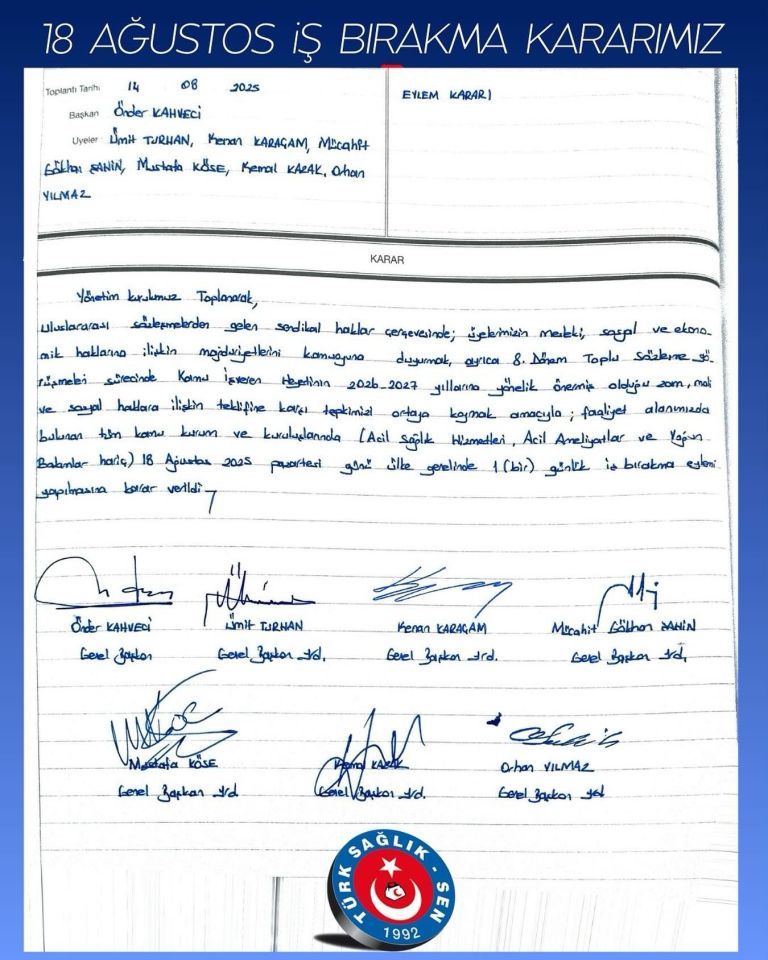 18 AĞUSTOS İŞ BIRAKMA KARARIMIZ
Toplantı Tarihi 14 08 2025
Başkan Önder KAHVECİ
Üyeler Ümit TURHAN, Kenan KARAÇAM, Mücahit
Gökhan ŞAHİN, Mustafa KÖSE, Kemal KAZAK, Orhan
YILMAZ
EYLEM KARARI
KARAR
Yönetim kurulumuz Toplanarak,
uluslararası sözleşmelerden gelen sendikal haklar çerçevesinde; üyelerimizin mesleki, sosyal ve ekono
mik haklarına ilişkin mağduriyetlerini kamuoyuna duyurmak, ayrıca 8. Dönem Toplu Sözleşme gö
rüşmeleri sürecinde Kamu İşveren Heyetinin 2026-2027 yıllarına yönelik önermiş olduğu zam, mali
ve sosyal haklara ilişkin teklifine karşı tepkimizi ortaya koymak amacıyla; faaliyet alanımızda
bulunan tüm kamu kurum ve kuruluşlarında (Acil Sağlık Hizmetleri, Acil Ameliyatlar ve Yoğun
Bakımlar hariç) 18 Ağustos 2025 pazartesi günü ülke genelinde 1 (bir) günlük iş bırakma eylemi
yapılmasına karar verildi
Önder KAHVECİ
Genel Başkan
Ümit TURHAN
Genel Başkan Yrd.
Kenan KARAÇAM
Genel Başkan Yrd.
Mücahit Gökhan ŞAHİN
Genel Başkan Yrd.
Mustafa KÖSE
Genel Başkan Yrd.
Kemal KAZAK
Genel Başkan Yrd.
Orhan YILMAZ
Genel Başkan Yrd
TÜRK SAĞLIK - SEN
1992